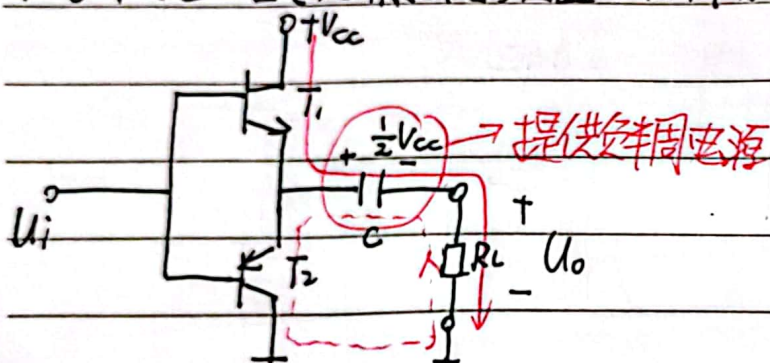 +Vcc
T₁
½Vcc
+ -
提供负半周电源
Ui
C
+
T₂
RL
Uo
-